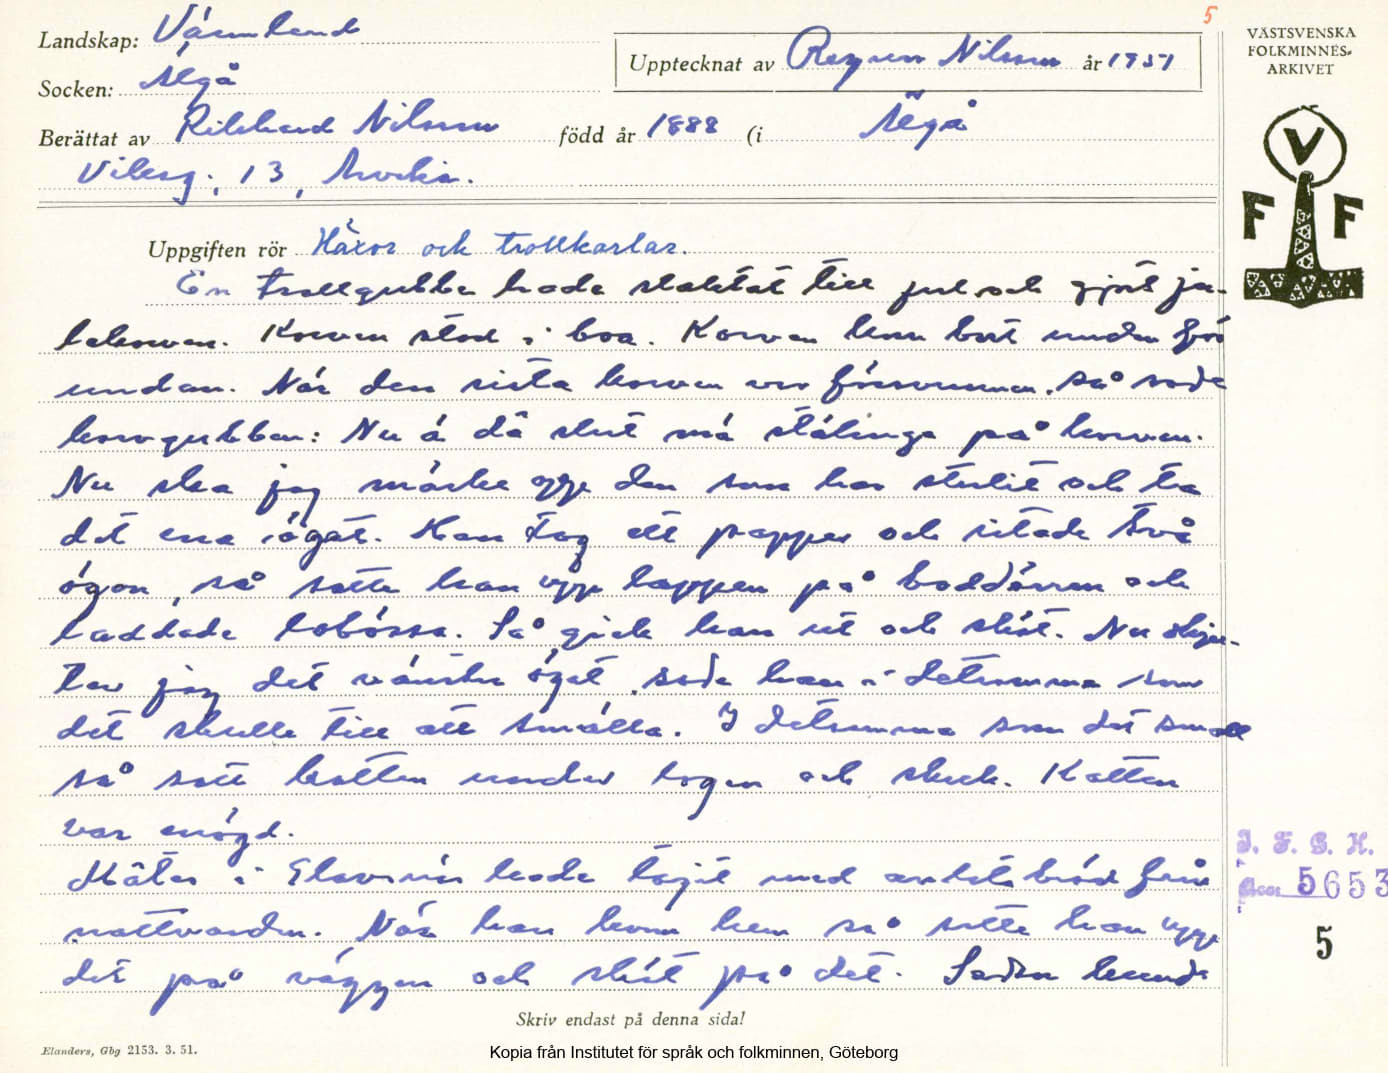 5
Landskap: Värmland
Socken: Älgå
Upptecknat av Ragnar Nilsson år 1951
VÄSTSVENSKA
FOLKMINNES-
ARKIVET
Berättat av Rikhard Nilsson född år 1888 (i Älgå
13, Arvika.
V
F F
Uppgiften rör Häxor och trollkarlar.
En trollgubbe hade slaktat till jul och gjort ju-
lekorven. Korven stod i boa. Korven kom bort undan för
undan. När den sista korven var försvunnen, så sade
korvgubben: Nu ä dä slut må stålinga på korven.
Nu ska jag märke upp den som har stulit och ta
det ena ögat. Han tog ett papper och ritade två
ögon, så satte han upp lappen på boddörren och
laddade lobössa. Så gick han ut och sköt. Nu skju-
ter jag det vänstra ögat, sade han i detsamma som
det skulle till att smälla. I detsamma som det small
så satt katten under logen och skrek. Katten
var enögd.
i hade tagit med oblat bröd från
nattvarden. När han kom hem så satte han upp
det på väggen och sköt på det. Sedan kunde
I. F. G. H.
5653
5
Skriv endast på denna sida!
Elanders, Gbg 2153. 3. 51.
Kopia från Institutet för språk och folkminnen, Göteborg